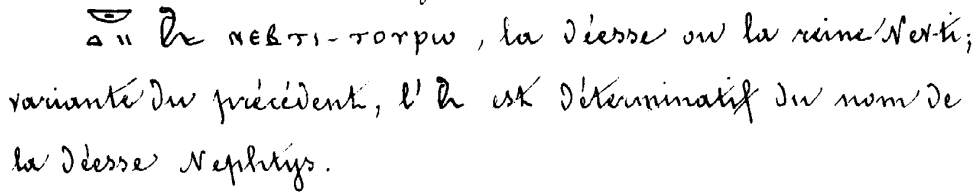 ⲛⲉⲃⲧⲓ-ⲧⲟⲩⲣⲱ, la Déesse ou la reine Nev-ti;
variante du précédent, l' est Déterminatif du nom de
la Déesse Nephtys.